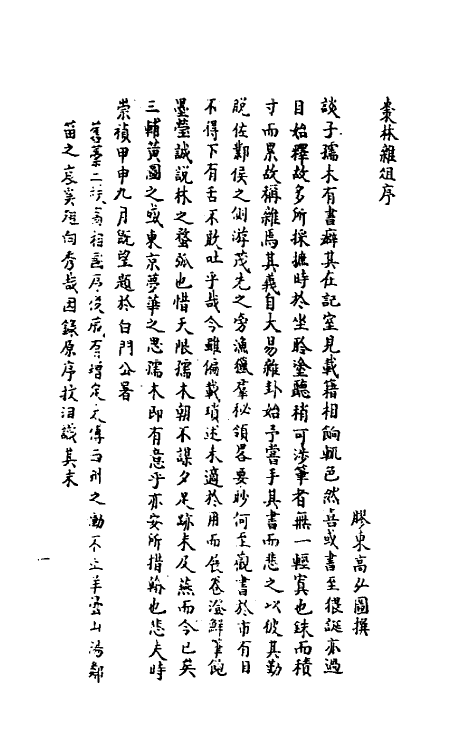 棗林雜俎序
膠東高弘圖撰
談子孺木有書癖其在記室見載籍相餉輒色然喜或書至猥誕亦過
目始釋故多所採摭時於坐聆塗聽稍可涉筆者無一輕寘也銖而積
寸而累故稱雜焉其義自大易雜卦始予嘗手其書而悲之以彼其勤
脫佐鄴侯之側游茂先之旁漁獵羣秘領畧要眇何至觀書於市有目
不得下有舌不敢吐乎哉今雖偏載瑣述未適於用而展卷澄鮮筆飽
墨瑩誠說林之蝥弧也惜天限孺木朝不謀夕足跡未及燕而今已矣
三輔黃圖之或東京夢華之思孺木即有意乎亦安所措翰也悲夫時
崇禎甲申九月既望題於白門公署
舊藁二袟高相國序後頗有增定文傳而州之動不立羊曇山陽鄰
笛之哀奚殖向秀哉因錄原序抆泪識其末
一